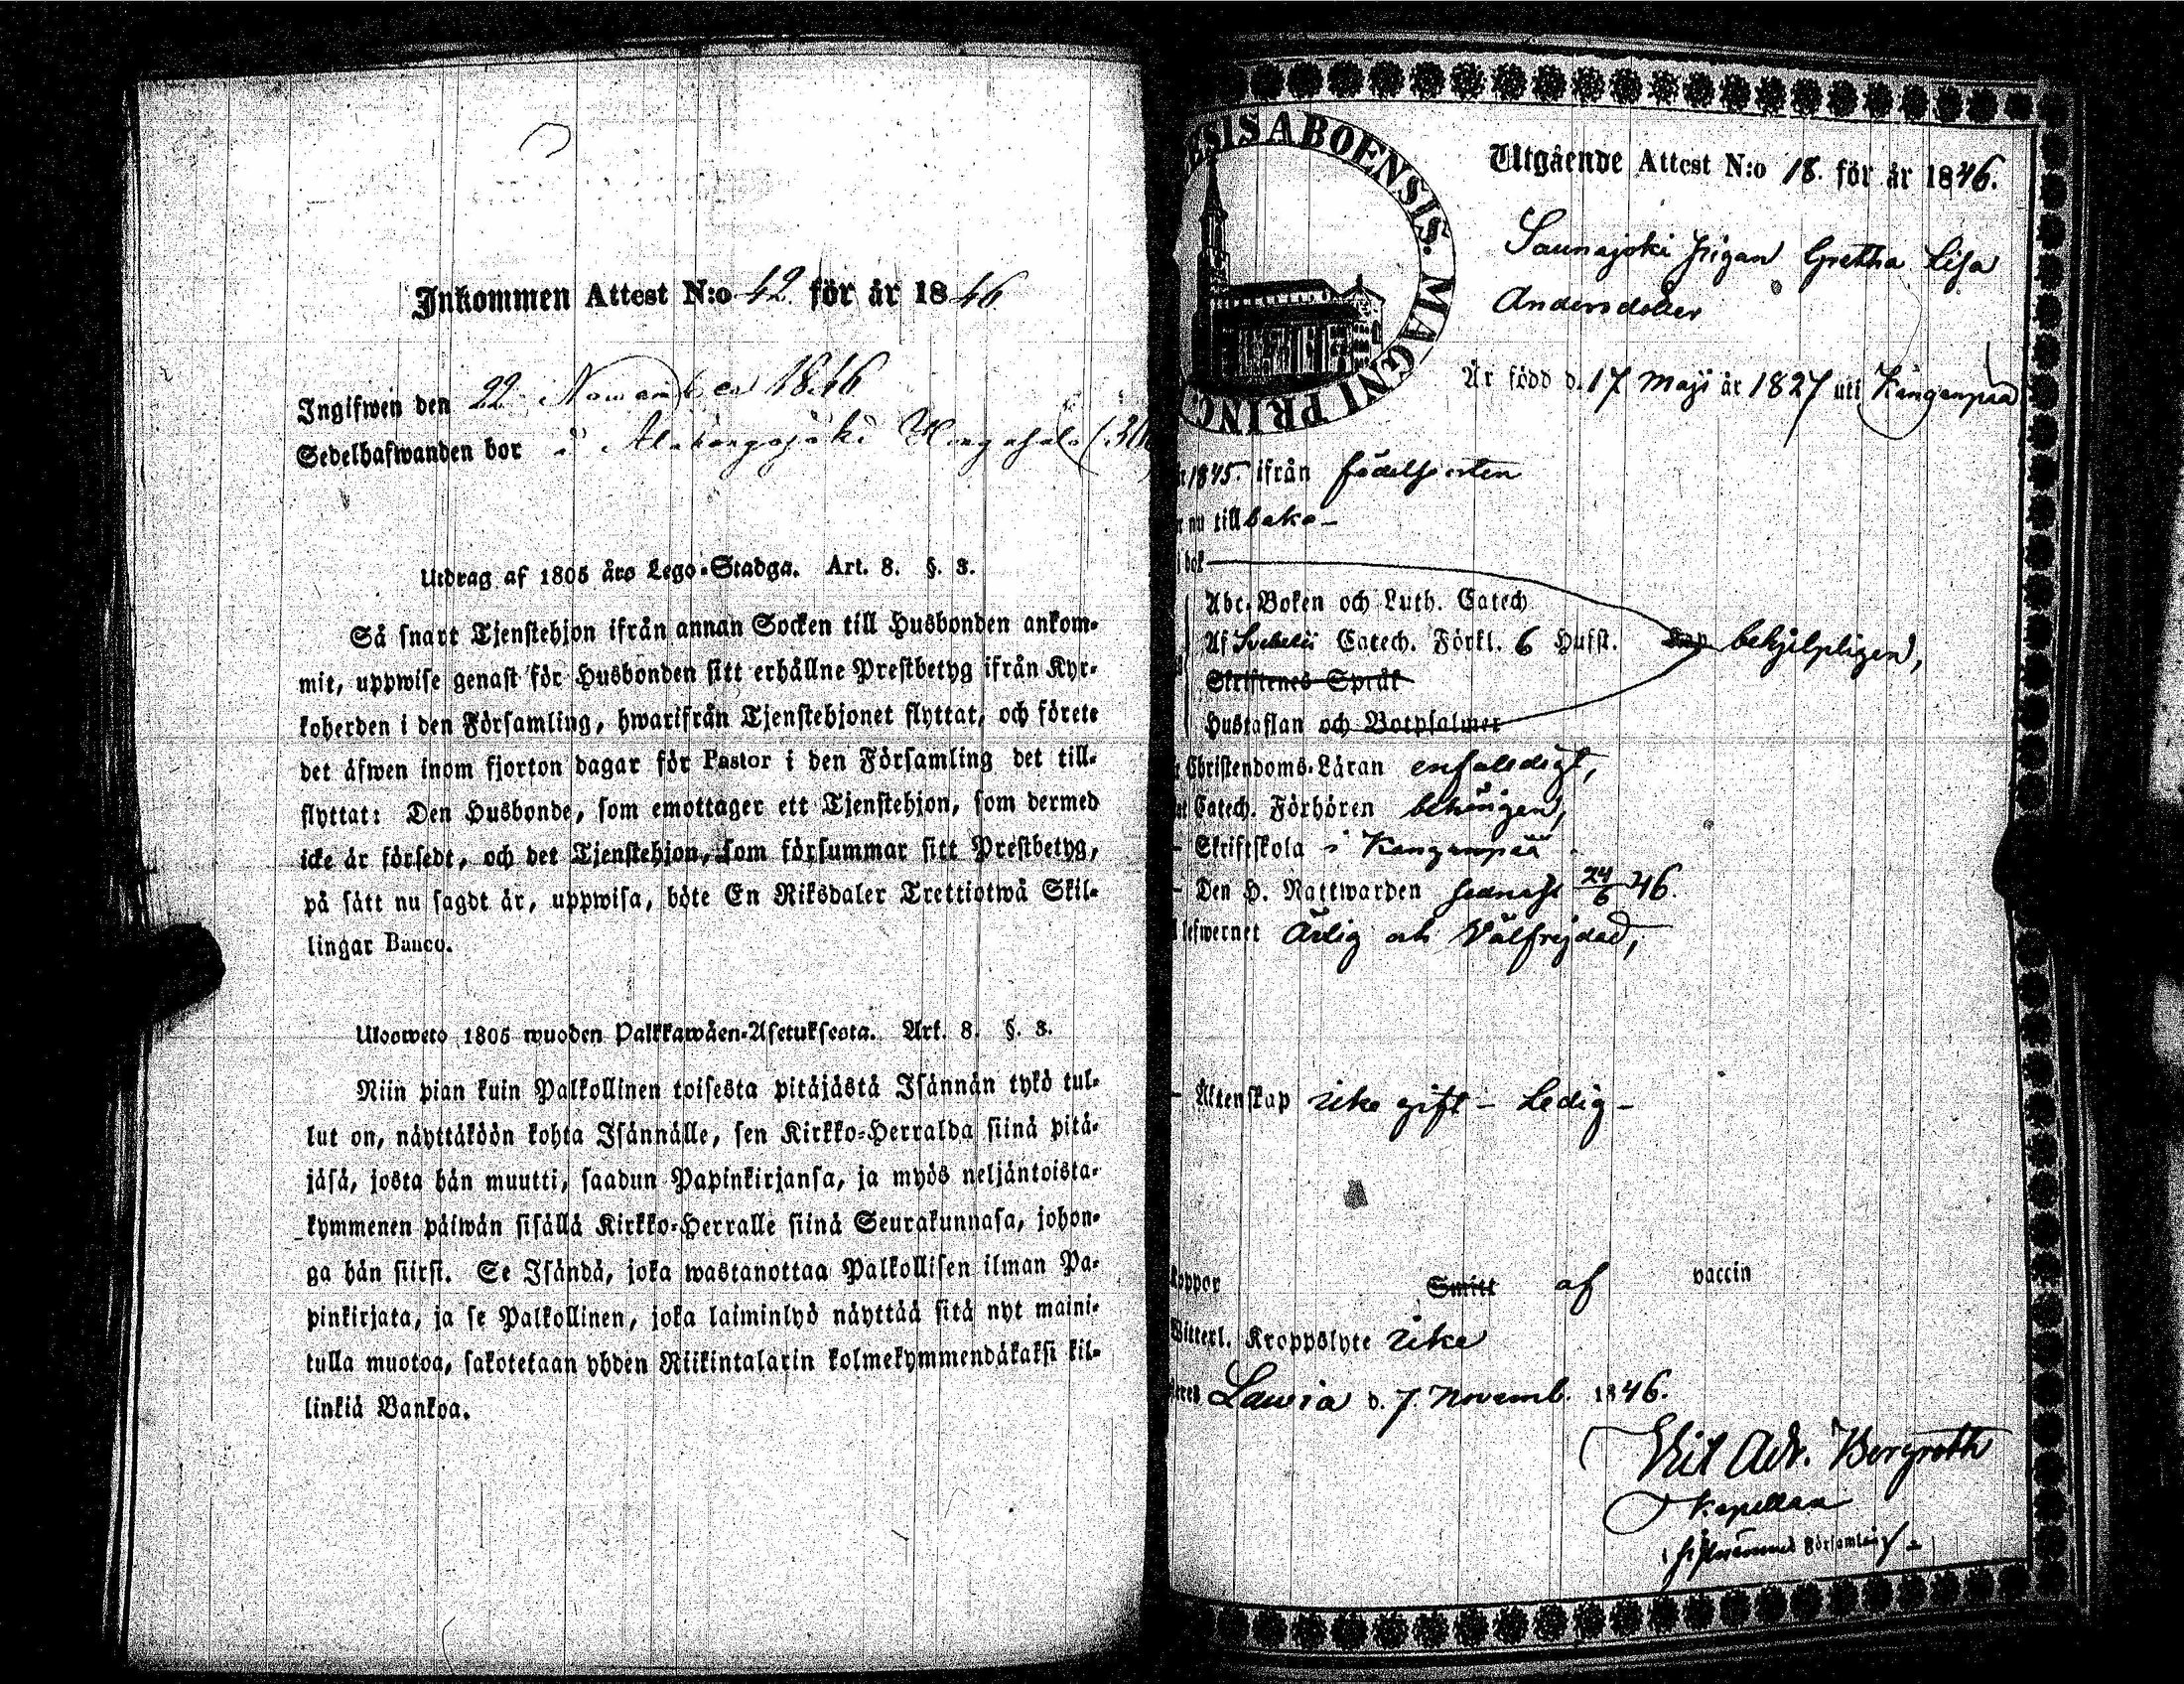 Inkommen Attest N:o 42 för år 1846
Ingifwen den 22 November 1846
Sedelhafwanden bor i
Utdrag af 1805 års Lego-Stadga. Art. 8. §. 3.
Så snart Tjenstehjon ifrån annan Socken till Husbonden ankom-
mit, uppwise genast för Husbonden sitt erhållne Prestbetyg ifrån Kyr-
koherden i den Församling, hwarifrån Tjenstehjonet flyttat, och förete
det äfwen inom fjorton dagar för Pastor i den Församling det till-
flyttat: Den Husbonde, som emottager ett Tjenstehjon, som dermed
icke är försedt, och det Tjenstehjon, som försummar sitt Prestbetyg,
på sätt nu sagdt är, uppwisa, böte En Riksdaler Trettiotwå Skil-
lingar Banco.
Ulosweto 1805 wuoden Palkkawäen-Asetuksesta. Art. 8. §. 3.
Niin pian kuin Palkollinen toisesta pitäjästä Isännän tykö tul-
lut on, näyttäköön kohta Isännälle, sen Kirkko-Herralda siinä pitä-
jäsä, josta hän muutti, saadun Papinkirjansa, ja myös neljäntoista-
kymmenen päiwän sisällä Kirkko-Herralle siinä Seurakunnasa, johon-
ga hän siirsi. Se Isändä, joka wastanottaa Palkollisen ilman Pa-
pinkirjata, ja se Palkollinen, joka laiminlyö näyttää sitä nyt maini-
tulla muotoa, sakotetaan yhden Riikintalarin kolmekymmendäkaksi kil-
linkiä Bankoa.
ESIS ABOENSIS. MAGNI PRINC
Utgående Attest N:o 18. för år 1846.
Saunajoki pigan Gretha Lisa
Andersdotter
Är född d. 17 Maji år 1827 uti Kanganpää
1845 ifrån födelseorten
nu tillbaka -
i bok
Abc-Boken och Luth. Catech
Af Svebelii Catech. Förkl. 6 Hufst. Kap behjelpligen,
Skriftenes Språk
Hustaflan och Botpsalmer
Christendoms-Läran enfaldigt,
Catech. Förhören behörigen,
- Skriftskola i Kanganpää
- Den H. Nattwarden sednast 24/6 46.
lefwernet Ärlig och Välfrejdad,
- Äktenskap icke gift - Ledig -
Koppor Smitt af vaccin
Witterl. Kroppslyte icke
Lawia d. 7 Novemb. 1846.
Adr. Bergroth
Kapellan
Församling -